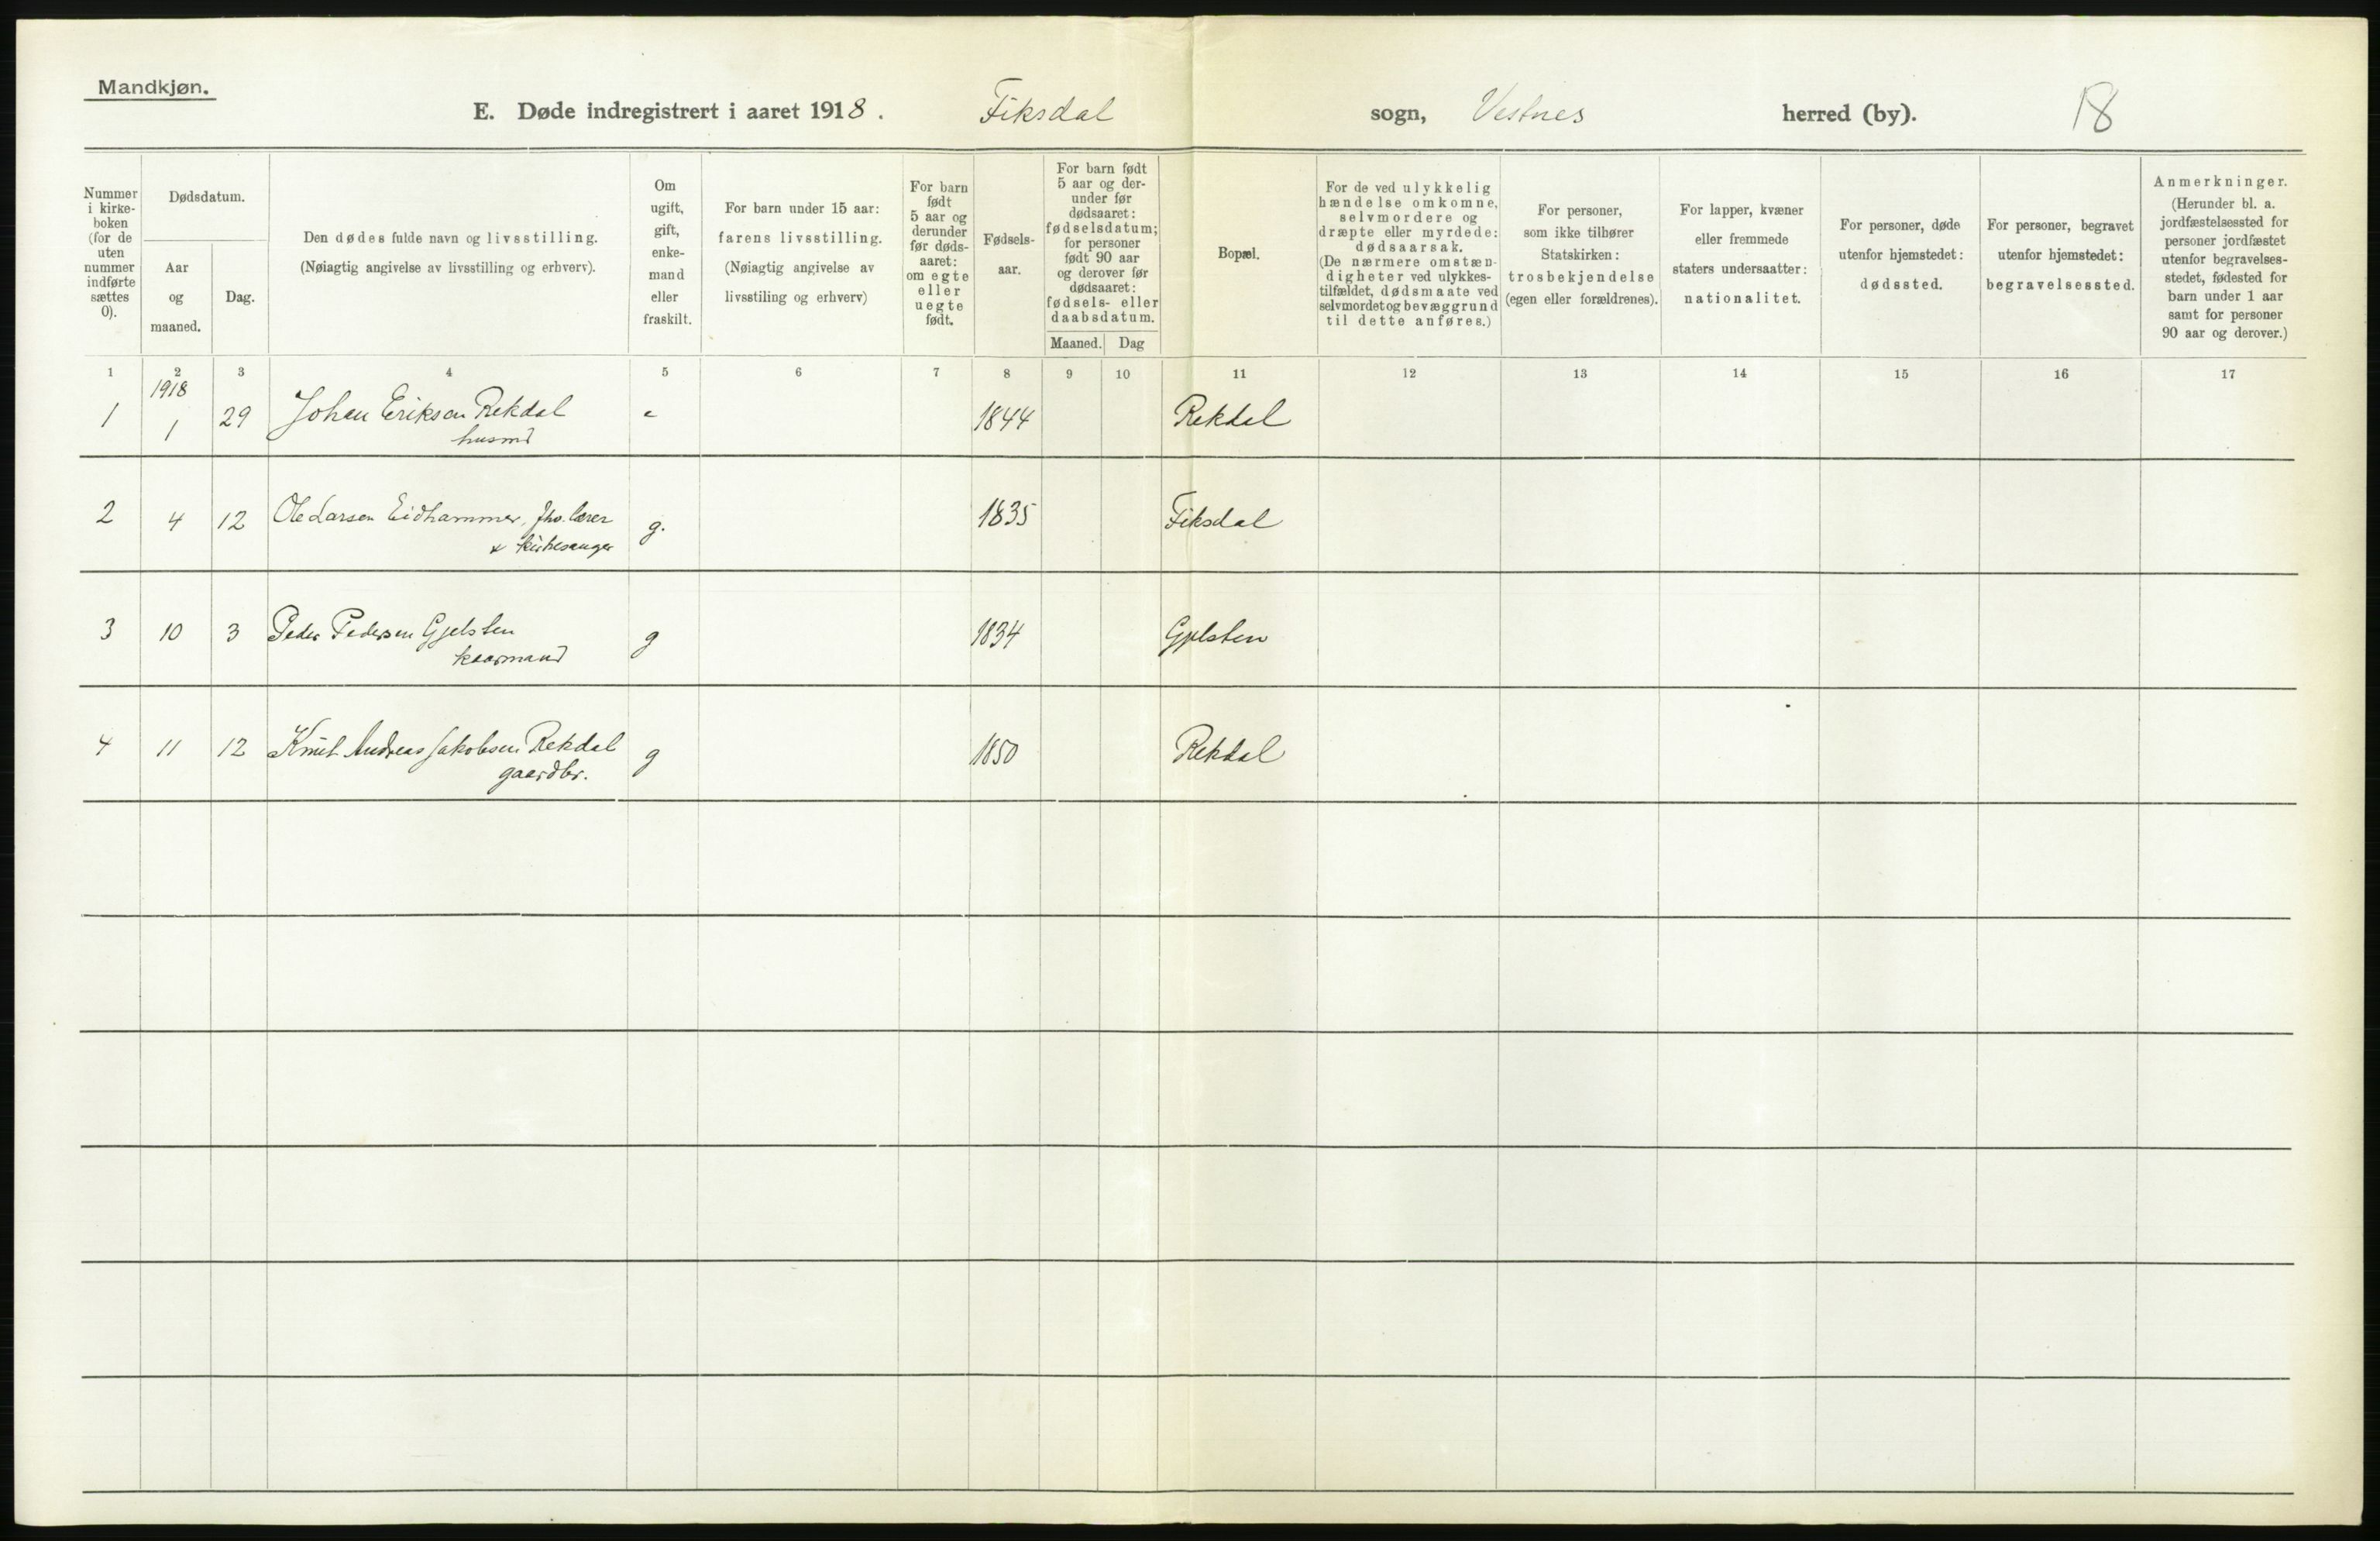 Mandkjøn.
E. Døde indregistrert i aaret 1918. Fiksdal sogn, Vestnes herred (by). 18
Nummer i kirke-boken (for de uten nummer indførte sættes 0).
Dødsdatum.
Aar og maaned.
Dag.
Den dødes fulde navn og livsstilling.
(Nøiagtig angivelse av livsstilling og erhverv).
Om ugift, gift, enke-mand eller fraskilt.
For barn under 15 aar:
farens livsstilling.
(Nøiagtig angivelse av
livsstiling og erhverv)
For barn født 5 aar og derunder før døds-aaret: om egte eller uegte født.
Fødsels-aar.
For barn født 5 aar og der-under før dødsaaret: fødselsdatum; for personer født 90 aar og derover før dødsaaret: fødsels- eller daabsdatum.
Maaned. Dag
Bopæl.
For de ved ulykkelig hændelse omkomne, selvmordere og dræpte eller myrdede: dødsaarsak. (De nærmere omstæn-digheter ved ulykkes-tilfældet, dødsmaate ved selvmordet og bevæggrund til dette anføres.)
For personer, som ikke tilhører Statskirken: trosbekjendelse (egen eller forældrenes).
For lapper, kvæner eller fremmede staters undersaatter: nationalitet.
For personer, døde utenfor hjemstedet: dødssted.
For personer, begravet utenfor hjemstedet: begravelsessted.
Anmerkninger. (Herunder bl. a. jordfæstelsessted for personer jordfæstet utenfor begravelses-stedet, fødested for barn under 1 aar samt for personer 90 aar og derover.)
1 2 3 4 5 6 7 8 9 10 11 12 13 14 15 16 17
1918
1 1 29 Johan Eriksen Rekdal e 1844 Rekdal
husmd
2 4 12 Ole Larsen Eidhammer, fhv. lærer g. 1835 Fiksdal
x kirkesanger
3 10 3 Peder Pedersen Gjelsten g 1834 Gjelsten
kaarmand
4 11 12 Knut Andreas Jakobsen Rekdal g 1850 Rekdal
gaardbr.